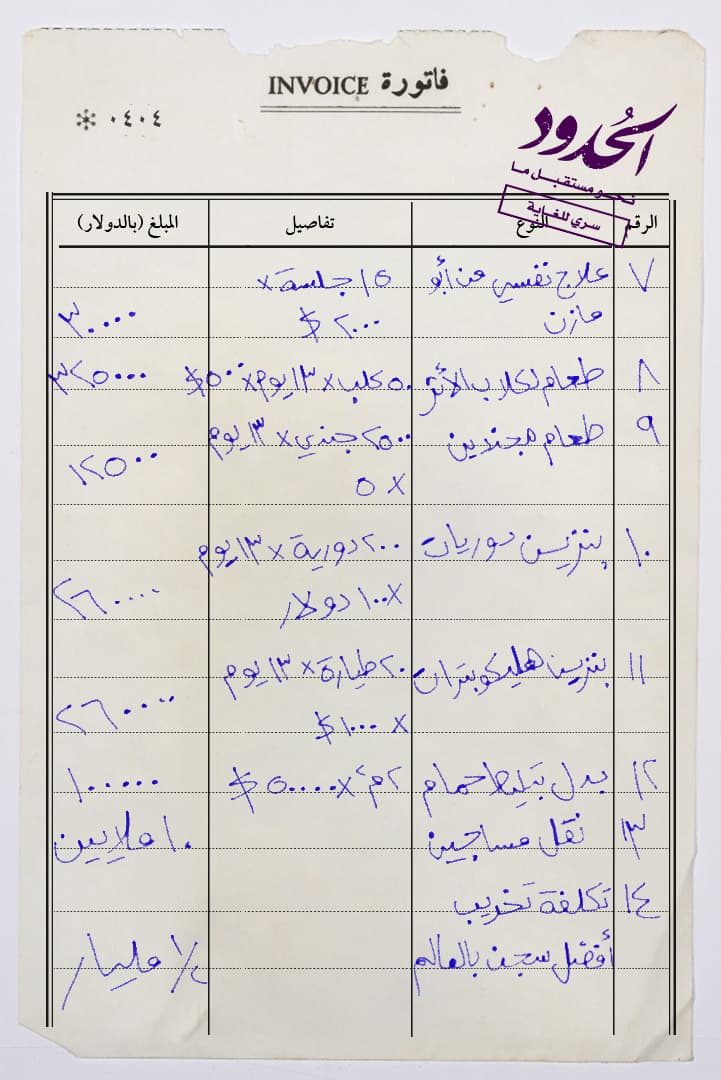 فاتورة INVOICE
٠٤٠٤ ✻
الحدود
نحو مستقبل ما
سري للغاية
الرقم النوع تفاصيل المبلغ (بالدولار)
٧ علاج نفسي من أبو ١٥ جلسة ×
مازن ٢٠٠٠ $ ٣٠٠٠٠
٨ طعام لكلاب الأثر ٥٠ كلب × ١٣ يوم × ٥٠٠$ ٣٢٥٠٠٠
٩ طعام مجندين ٢٥٠٠ جندي × ١٣ يوم
× ٥ ١٢٥٠٠
١٠ بنزين دوريات ٢٠٠ دورية × ١٣ يوم
×١٠٠ دولار ٢٦٠٠٠٠
١١ بنزين هليكوبترات ٢٠ طيارة × ١٣ يوم
× ١٠٠٠ $ ٢٦٠٠٠٠
١٢ بدل تبليط حمام ٢م٢ × ٥٠٠٠٠ $ ١٠٠٠٠٠
١٣ نقل مساجين ١٠ ملايين
١٤ تكلفة تخريب
أفضل سجن بالعالم ١/٢ مليار